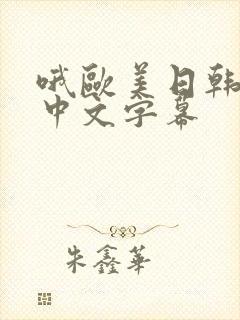 哦歐美日韩
中文字幕
朱鑫華